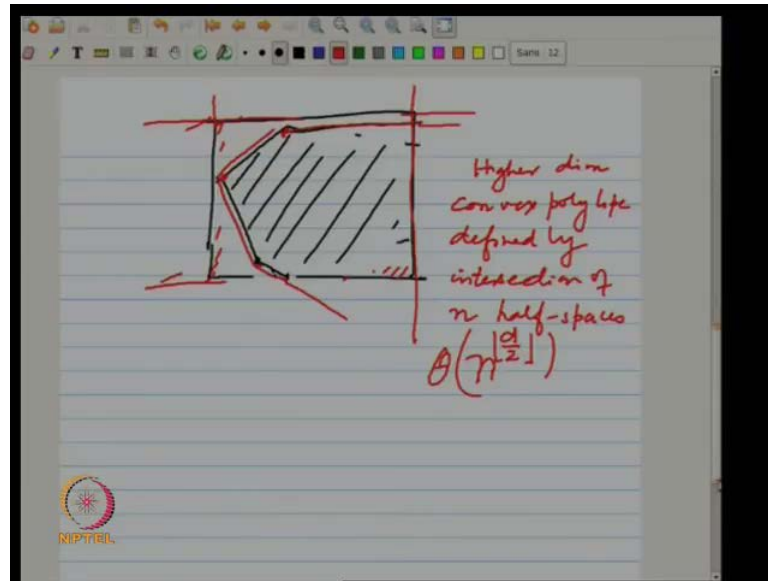 Sans 12
Higher dim
convex polytope
defined by
intersection of
n half-spaces
θ(n^⌊d/2⌋)
NPTEL